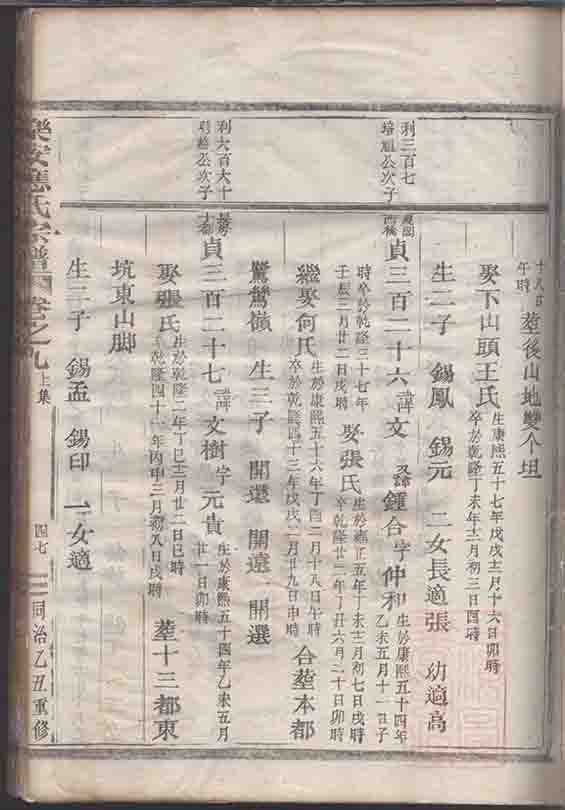 十八日
午時
葬後山地雙个坦
娶下山頭王氏
生康熙五十七年戊戌十二月十六日卯時
卒於乾隆丁未年十二月初三日酉時
生二子 錫鳳 錫元 二女長適張 幼適高
利三百七
培組公次子
西橋
貞三百二十六諱文 又諱鍾合字仲和
生於康熙五十四年
乙未五月十一日子
時卒於乾隆三十七年
壬辰三月廿二日戌時
娶張氏
生於雍正五年丁未十二月初七日戌時
卒乾隆廿二年丁丑六月二十日卯時
繼娶何氏
生於康熙五十六年丁酉二月十八日午時
卒於乾隆四十三年戊戌二月廿九日申時
合葬本都
鶯鶯嶺 生三子 開選 開遠 開選
利六百六十
公次子
貞三百二十七諱文樹字元貴
生於康熙五十四年乙未五月
廿一日卯時
娶張氏
生於乾隆二年丁巳十二月廿二日巳時
乾隆四十一年丙申三月初八日戌時
葬十三都東
坑東山脚
生二子 錫孟 錫印 一女適
樂安應氏宗譜 卷之九 上集
四七
同治乙丑重修